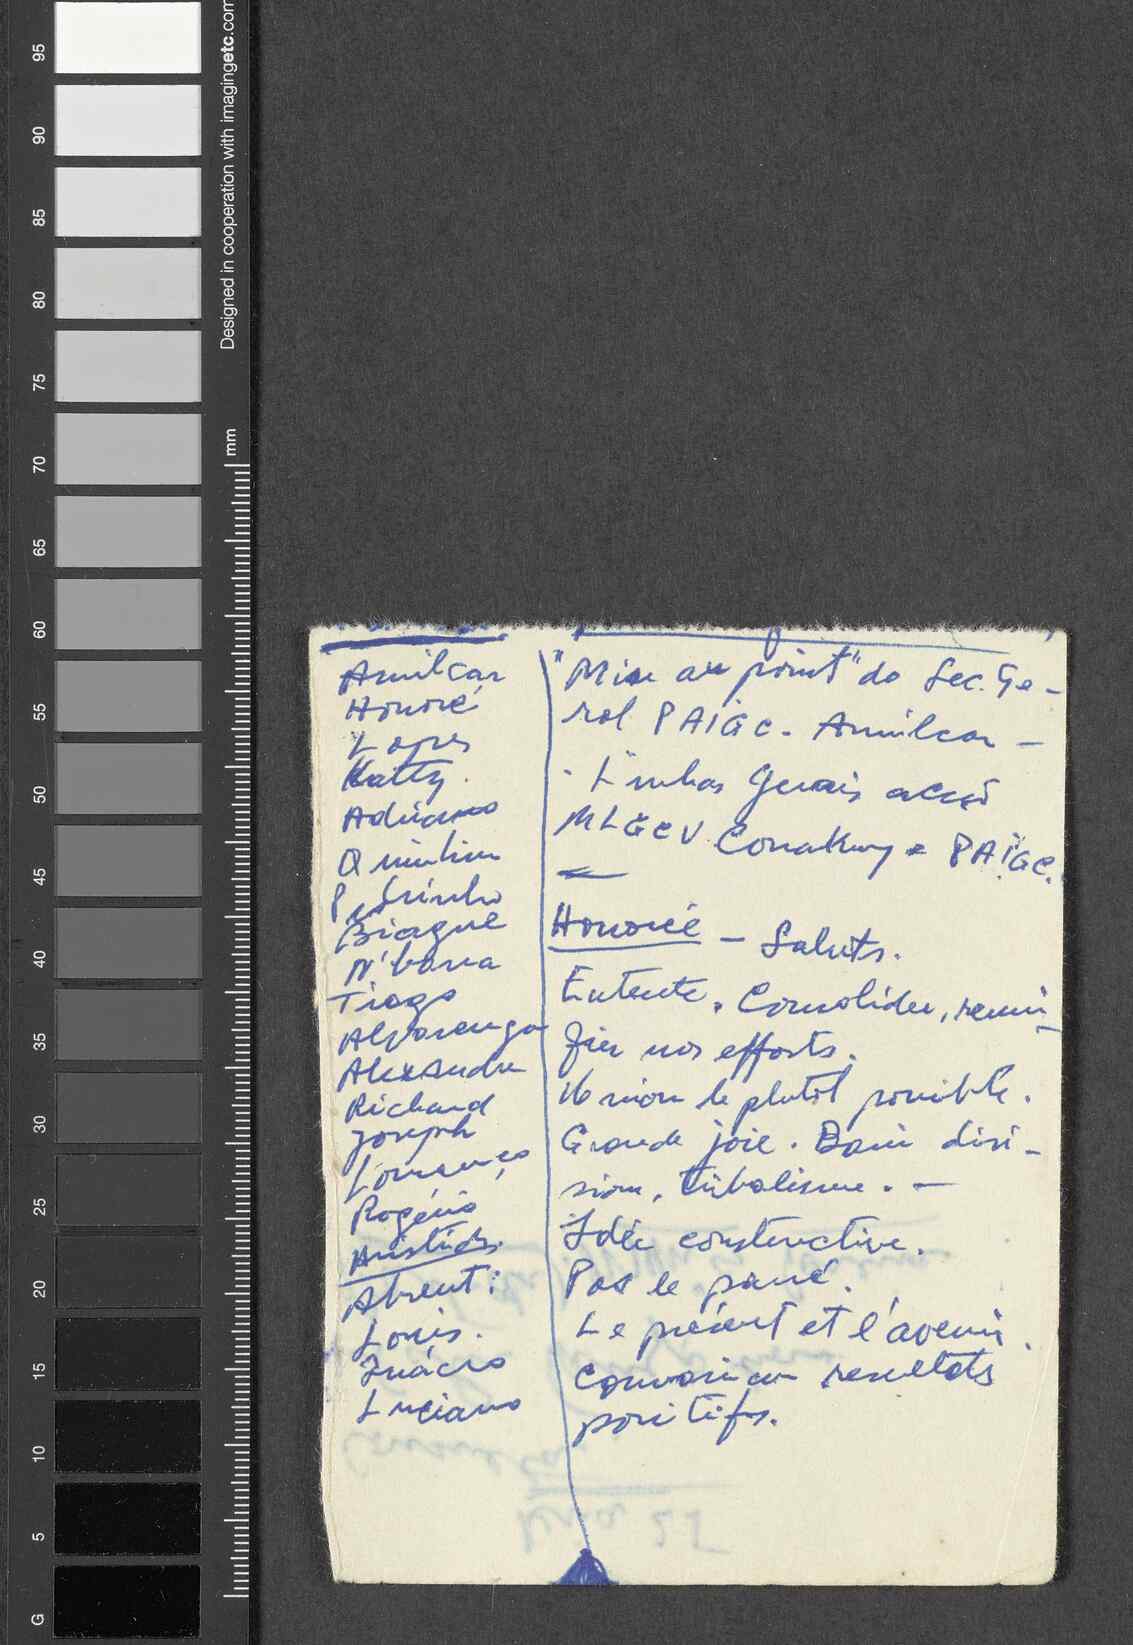 Amilcar
Honoré
Lopes
Katty.
Adriano
Quintino
Pedrinho
Biague
N'bana
Tiago
Alvarenga
Alexandre
Richard
Joseph
Lourenço
Rogério
Aristides.
Absent:
Louis.
Inácio
Luciano
"Mise au point" do Sec. Ge-
ral PAIGC. Amilcar -
- Linhas Gerais acção
MLGCV Conakry e PAIGC.
Honoré - Saluts.
Entente. Consolider,
fier nos efforts.
Union le plutôt possible.
Grande joie. divi-
sion, tribalisme. -
Idée constructive.
Pas le passé.
Le présent et l'avenir.
resultats
positifs.
95
90
85
80
75
70
65
60
55
50
45
40
35
30
25
20
15
10
5
G
mm
Designed in cooperation with imagingetc.com